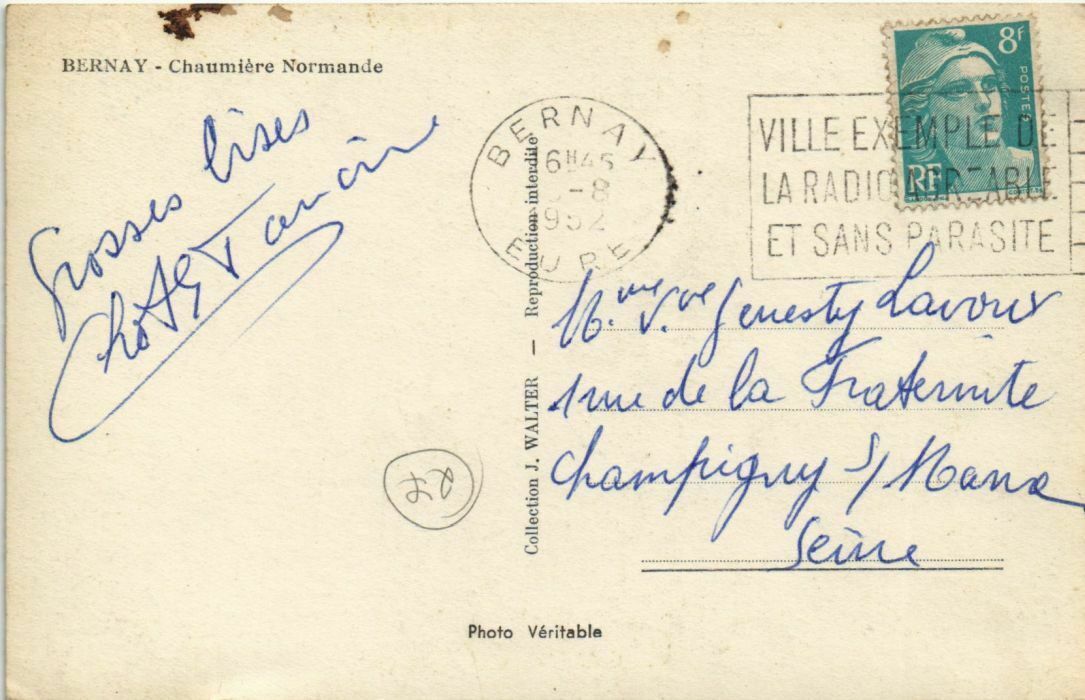 BERNAY - Chaumière Normande
Grosses bises
BERNAY
6H45
-8
1952
EURE
VILLE EXEMPLE DE
LA RADIO AGREABLE
ET SANS PARASITE
8F
POSTES
RF
Collection J. WALTER — Reproduction interdite
Mme Vve Genesty Lavoux
1 rue de la Fraternite
Champigny s/ Marne
Seine
Photo Véritable